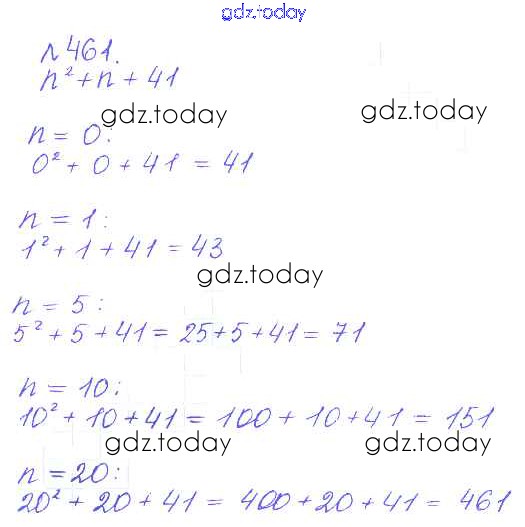 gdz.today
№461.
n² + n + 41
gdz.today gdz.today
n = 0:
0² + 0 + 41 = 41
n = 1:
1² + 1 + 41 = 43
gdz.today
n = 5:
5² + 5 + 41 = 25 + 5 + 41 = 71
n = 10:
10² + 10 + 41 = 100 + 10 + 41 = 151
gdz.today gdz.today
n = 20:
20² + 20 + 41 = 400 + 20 + 41 = 461